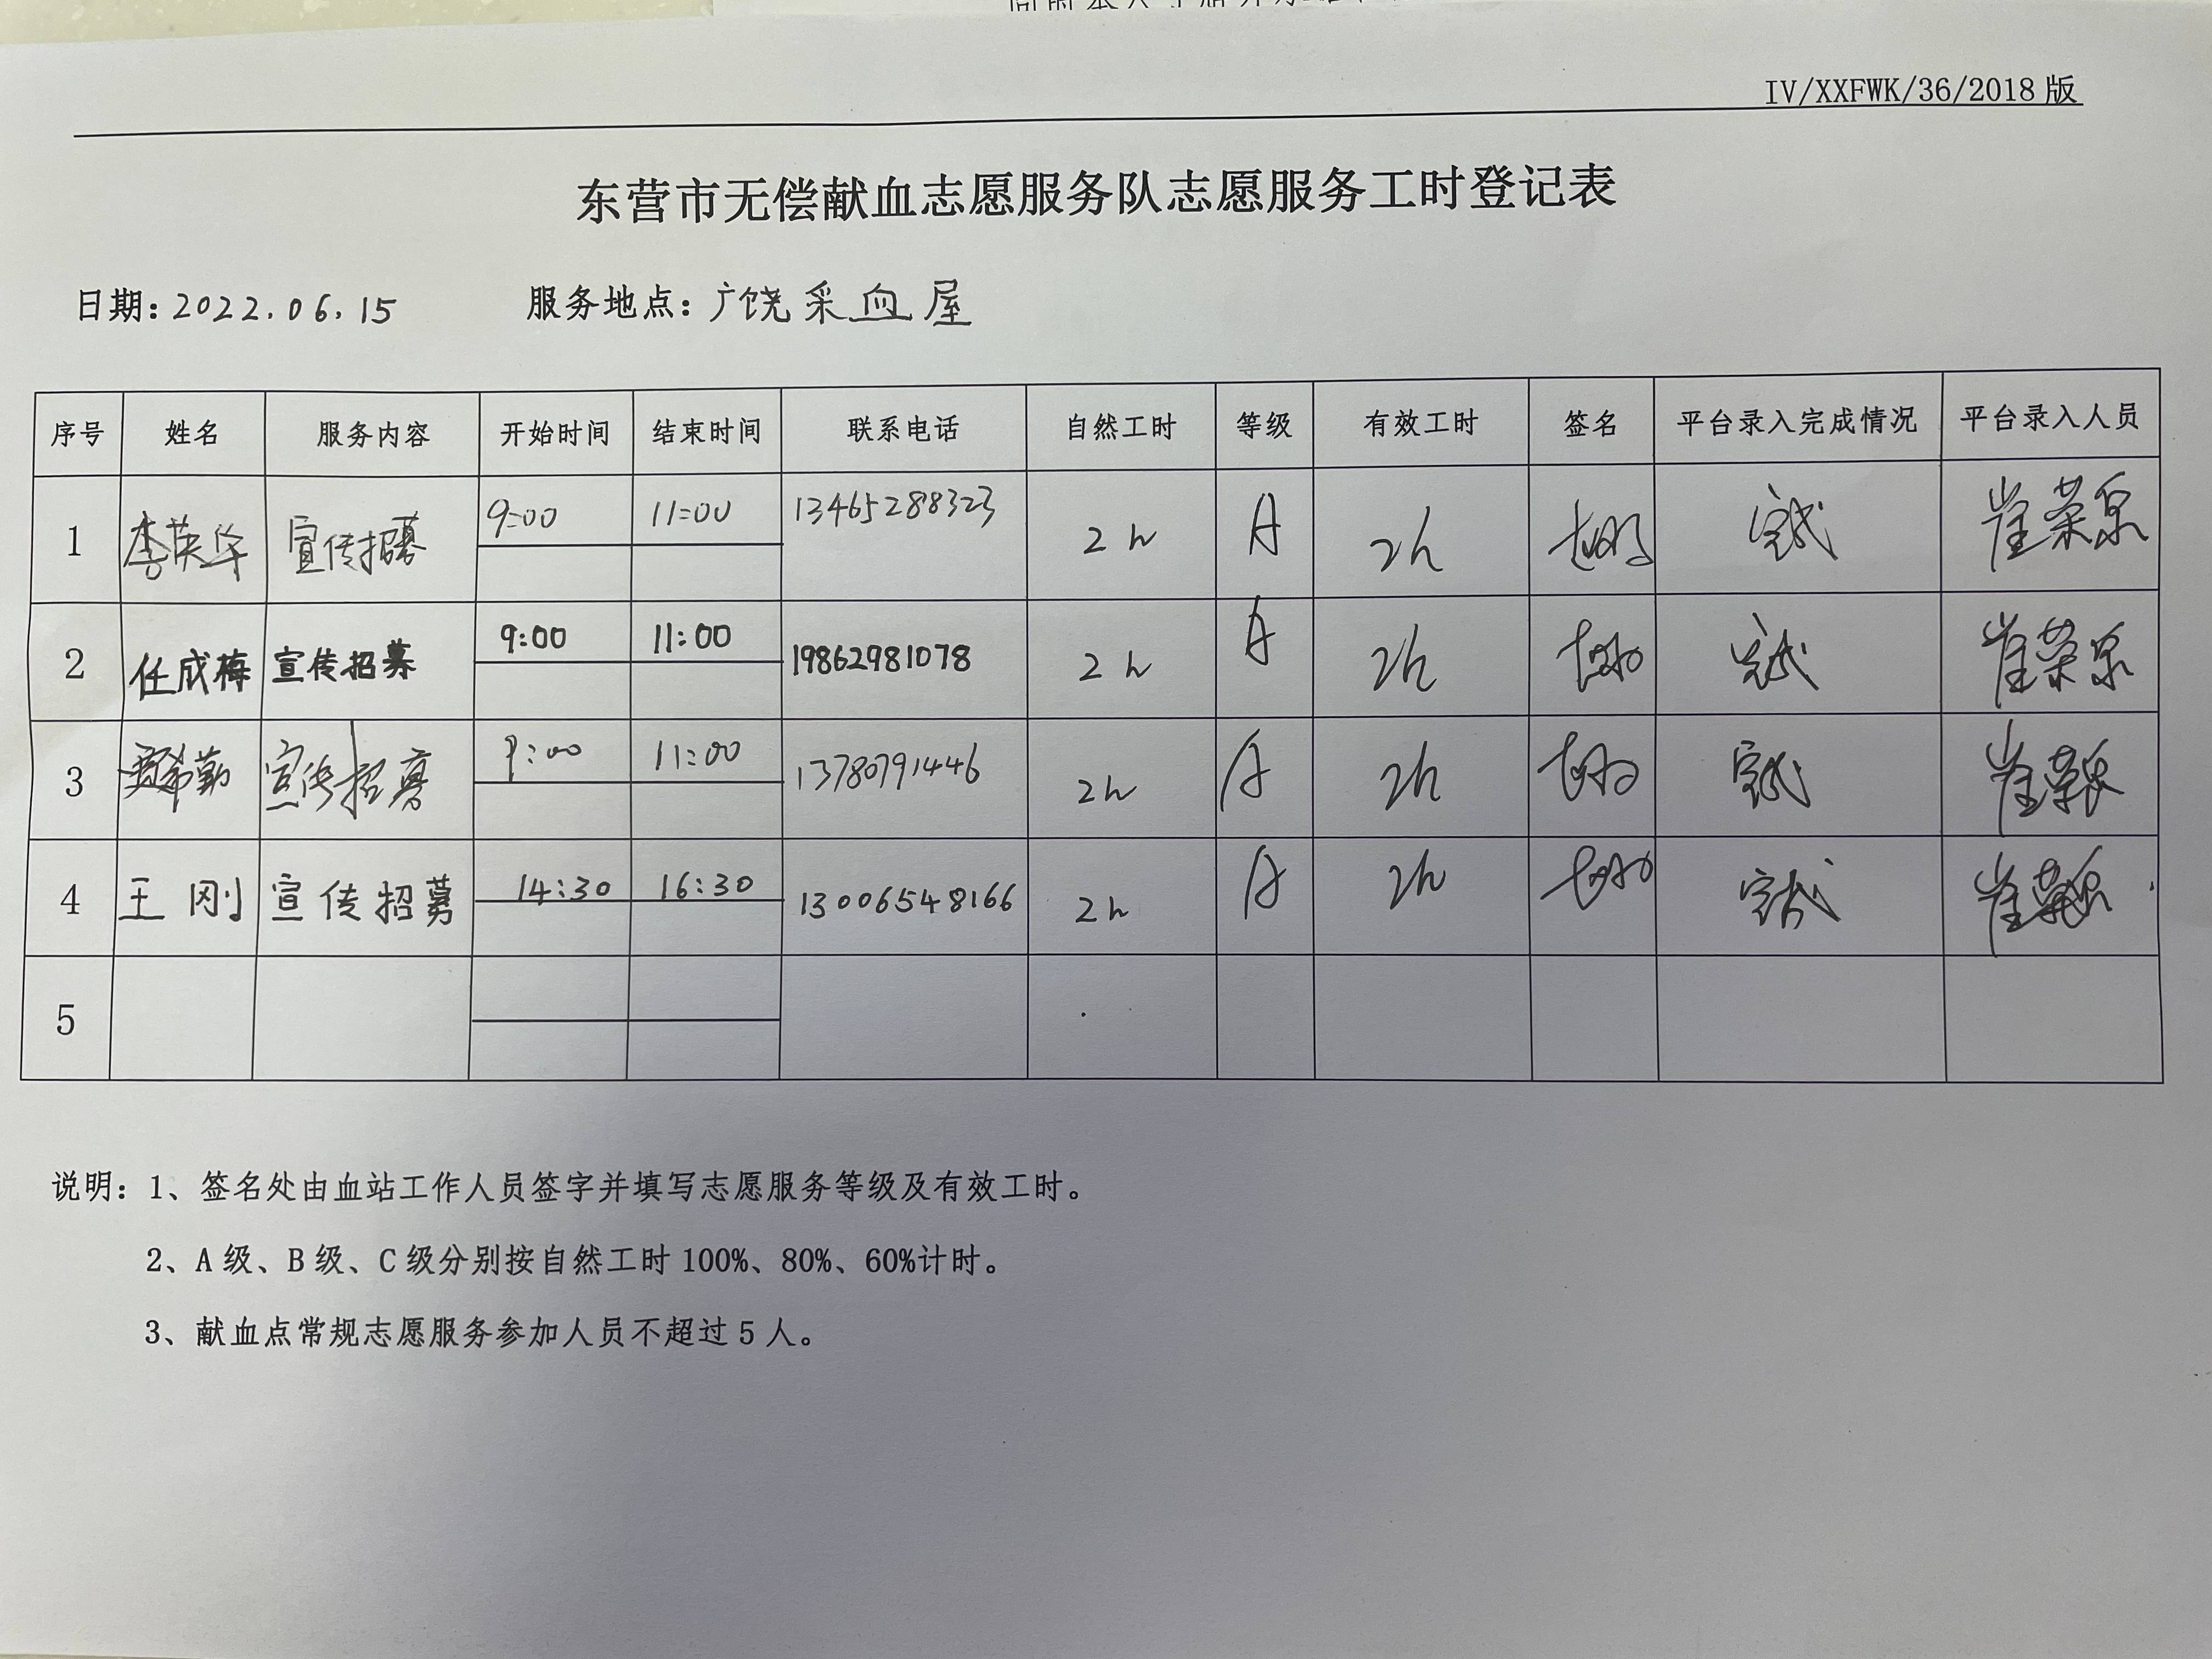 IV/XXFWK/36/2018版
东营市无偿献血志愿服务队志愿服务工时登记表
日期:2022.06.15 服务地点:广饶采血屋
序号 姓名 服务内容 开始时间 结束时间 联系电话 自然工时 等级 有效工时 签名 平台录入完成情况 平台录入人员
1 李英华 宣传招募 9:00 11:00 13465288323 2h A 2h 完成 崔荣泉
2 任成梅 宣传招募 9:00 11:00 19862981078 2h A 2h 完成 崔荣泉
3 宣传招募 9:00 11:00 13780791446 2h A 2h 完成 崔荣泉
4 王刚 宣传招募 14:30 16:30 13006548166 2h A 2h 完成 崔荣泉
5
说明:1、签名处由血站工作人员签字并填写志愿服务等级及有效工时。
2、A级、B级、C级分别按自然工时100%、80%、60%计时。
3、献血点常规志愿服务参加人员不超过5人。